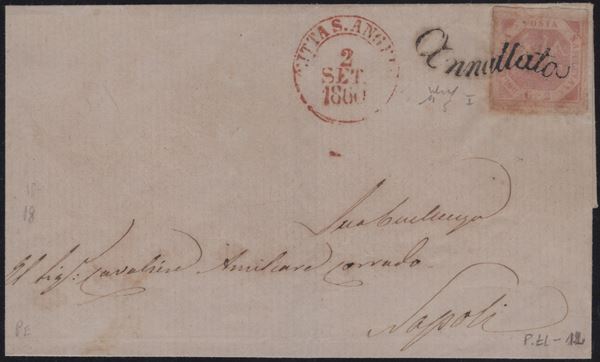 CITTA S. ANGE
2
SET.
1860
Annullato
POSTA
Sua Eccellenza
Il Sig. Cavaliere Amilcare Corrado
Napoli
18
PE